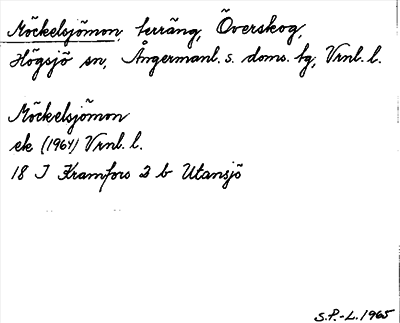 Möckelsjömon, terräng, Överskog,
Högsjö sn, Ångermanl. s. doms. tg, Vrnl. l.
Möckelsjömon
ek (1964) Vrnl. l.
18 I Kramfors 2 b Utansjö
S.P.-L. 1965